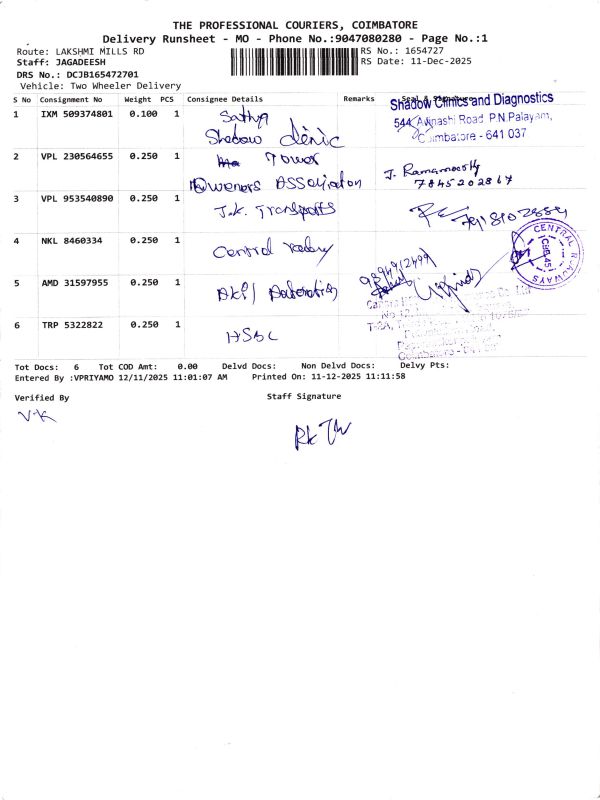 THE PROFESSIONAL COURIERS, COIMBATORE
Delivery Runsheet - MO - Phone No.:9047080280 - Page No.:1
Route: LAKSHMI MILLS RD
RS No.: 1654727
Staff: JAGADEESH
RS Date: 11-Dec-2025
DRS No.: DCJB165472701
Vehicle: Two Wheeler Delivery
S No Consignment No Weight PCS Consignee Details Remarks Seal & Signature
1 IXM 509374801 0.100 1 Sathya
Shadow clinic
Shadow Clinics and Diagnostics
544, Avinashi Road, P.N.Palayam,
Coimbatore - 641 037
2 VPL 230564655 0.250 1 Tower
Oweners Association
J. Ramamoorthy
7845202867
3 VPL 953540890 0.250 1 J.K. Transports
4 NKL 8460334 0.250 1 Central
CENTRAL ROADWAYS
CBE-45
5 AMD 31597955 0.250 1
6 TRP 5322822 0.250 1 HSBC
Tot Docs: 6 Tot COD Amt: 0.00 Delvd Docs: Non Delvd Docs: Delvy Pts:
Entered By :VPRIYAMO 12/11/2025 11:01:07 AM Printed On: 11-12-2025 11:11:58
Verified By Staff Signature
V-K